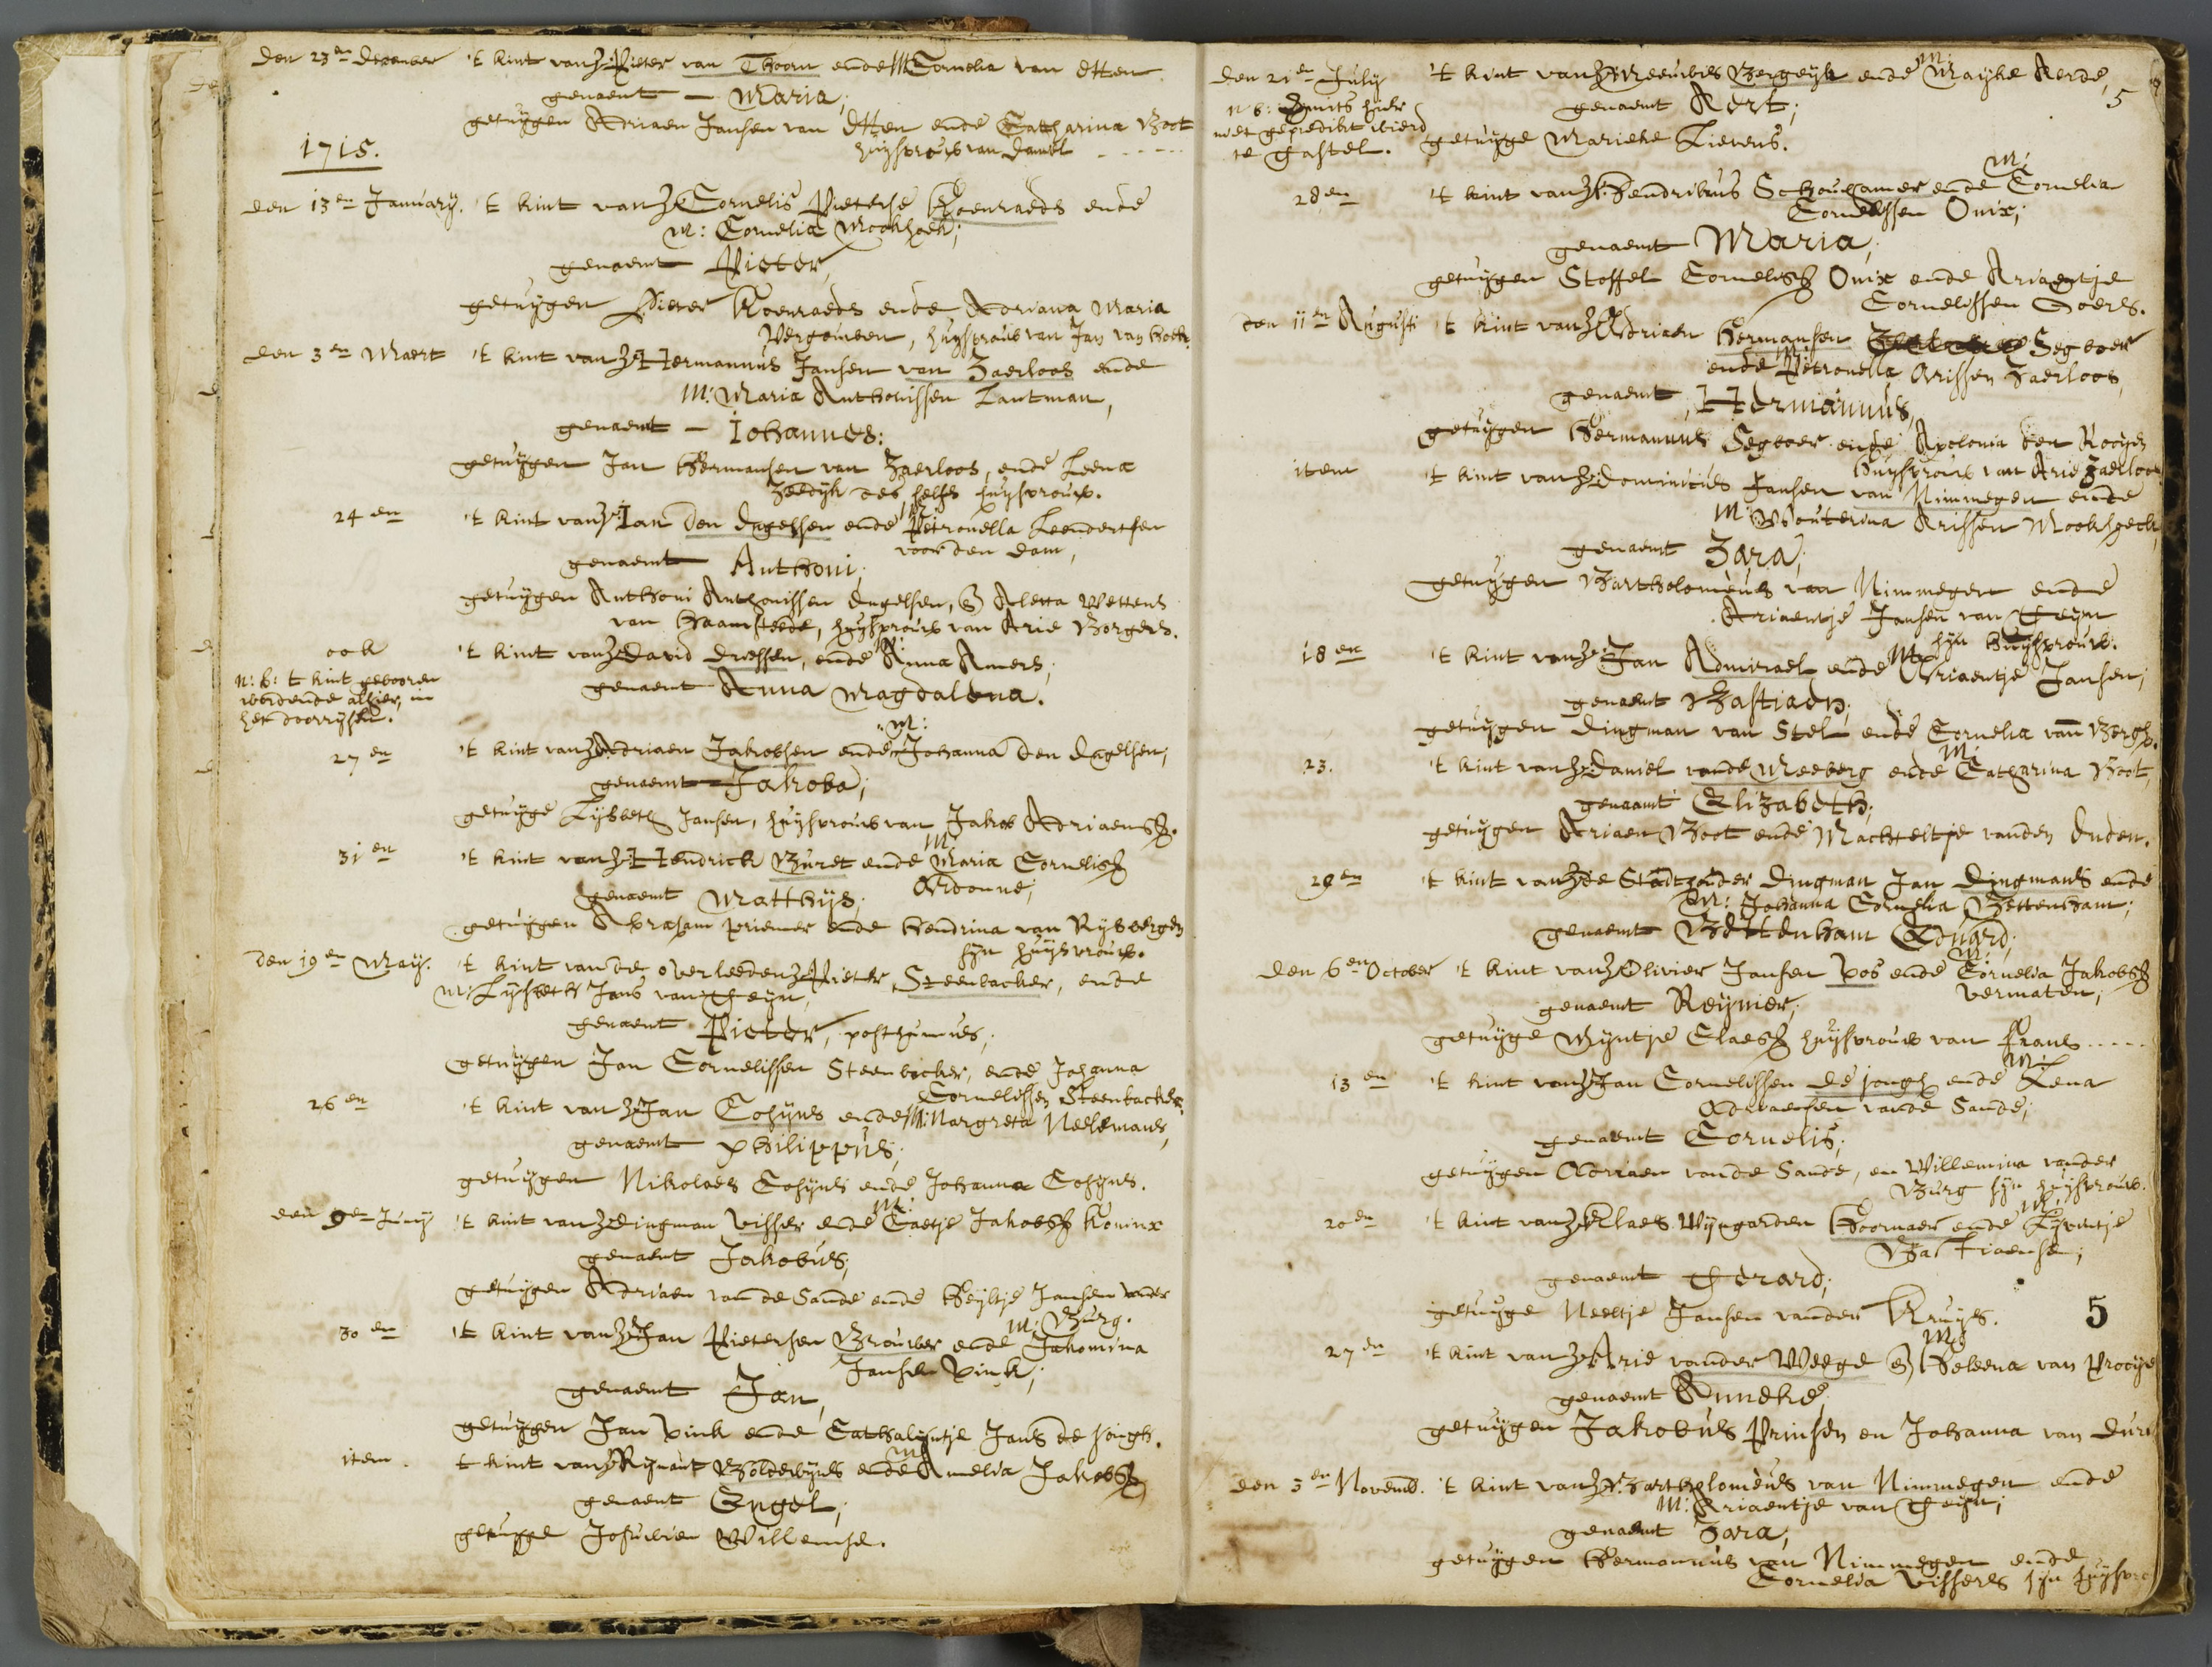 den 23en december 't kint van V: Pieter van Thoorn ende M: Cornelia van Etten
genaemt - Maria;
getuygen Adriaen Jansen van Etten ende Catharina Boot
huysvrouw van Daniel - - - - -
1715.
den 13en January. 't kint van V: Cornelis Pieterse Koenraeds ende
M: Cornelia Mookhoek;
genaemt Pieter,
getuygen Pieter Koenraeds ende Adriana Maria
Vergouwen, huysvrouw van Jan van Hoek.
den 3en Maert 't kint van V: Hermannus Jansen van Zaerloos ende
M: Maria Anthonissen Lantman,
genaemt - Johannes:
getuygen Jan Hermansen van Zaerloos, ende Leena
Zeedyk des selfs huysvrouw.
24en 't kint van V: Jan den Engelsen ende M: Petronella Leendertsen
voor den dam,
genaemt Anthoni;
getuygen Anthoni Anthonissen Engelsen, & Aletta Wettens
van Haamstede, huysvrouw van Arie Borgers.
ook 't kint van V: David Driessen, ende M: Anna Amers,
n: b: t kint gebooren
werdende alhier, in
het doorrysen.
genaemt Anna Magdalena.
M:
27en 't kint van V: Adriaen Jakobsen ende Johanna den Engelsen,
genaemt Jakoba;
getuyge Lysbeth Jansen, huysvrouw van Jakob Adriaens.
M:
31en 't kint van V: Hendrick Buret ende Maria Cornelis
Ardonne;
genaemt Matthys;
getuygen Abraham Priemer ende Hendrina van Rysbergen
syn huysvrouw.
den 19en May. 't kint van de overleeden V: Pieter Steenbacker, ende
M: Lysbeth Jans van Gryn,
genaemt Pieter, posthumus,
getuygen Jan Cornelissen Steenbacker, ende Johanna
Cornelissen Steenbacker.
26en 't kint van V: Jan Cohyns ende M: Margreta Neelemans,
genaemt Philippus;
getuygen Nikolaes Cohyns ende Johanna Cohyns.
M:
den 9en Juny 't kint van V: Dingman Visser ende Caetje Jakobs Koninx
genaemt Jakobus;
getuygen Adriaen van de Sande ende Heyltje Jansen vander
Burg.
M:
30en 't kint van V: Jan Pietersen Brouwer ende Jakomina
Jansen Vink;
genaemt Jan,
getuygen Jan Vink ende Cathalyntje Jans de Jongh.
M:
item. t kint van V: Rynant Boldewyns ende Amelia Jakobs
genaemt Engel;
getuyge Willemse.
5
M:
den 21en July 't kint van V: Meeuwes Bergeyk ende Mayke Aerde,
n: b: mits hier
niet gepredikt wierd
te Gastel.
genaemt Aert;
getuyge Marieke Lievens.
M:
28en 't kint van V: Hendrikus Schoukamer ende Cornelia
Cornelissen Onix;
genaemt Maria;
getuygen Stoffel Cornelis Onix ende Ariaentje
Cornelissen Goers.
den 11en Augusti 't kint van V: Adriaen Hermansen Segboer
ende M: Petronella Arissen Zaerloos,
genaemt Hermannus,
getuygen Hermannus Segboer ende Apolonia den Rooyen
huysvrouw van Arie Zaerloos.
item 't kint van V: Dominicus Jansen van Nimmegen ende
M: Wouterina Arissen Mookhoeck,
genaemt Zara;
getuygen Bartholomeus van Nimmegen ende
Ariaentje Jansen van Gryn
syn huysvrouw.
18en 't kint van V: Jan Admirael ende M: Ariaentje Jansen;
genaemt Bastiaen;
getuygen Dingman van Stel ende Cornelia van Bergh.
M:
23. 't kint van V: Daniel vande Meeberg ende Catharina Boot,
genaamt Elizabeth;
getuygen Ariaen Boot ende Machteltje vanden Enden.
29en 't kint van V: de Stadhouder Dingman Jan Dingmans ende
M: Johanna Cornelia Bettenham;
genaemt Bettenham Eduard;
M:
den 6en October 't kint van V: Olivier Jansen Vos ende Cornelia Jakobs
Vermaten;
genaemt Reynier,
getuyge Myntje Claes huysvrouw van Frans - - - - -
M:
13en 't kint van V: Jan Cornelissen de Jongh ende Lena
Adriaensen vande Sande;
genaemt Cornelis;
getuygen Adriaen vande Sande, en Willemina vander
Burg syn huysvrouw.
M:
20en 't kint van V: Klaes Wyngarden Hoornaer ende Lyventje
Bastiaense;
genaemt Gerard;
getuyge Neeltje Jansen vander Kruys.
5
M:
27en 't kint van V: Arie vander Weege & Heleena van Prooye
genaemt Anneke,
getuygen Jakobus Prinsen en Johanna van
den 3en Novemb. 't kint van V: Bartholomeus van Nimmegen ende
M: Ariaentje van Gryn;
genaemt Zara;
getuygen Hermannus van Nimmegen ende
Cornelia Vissers syn huysvro